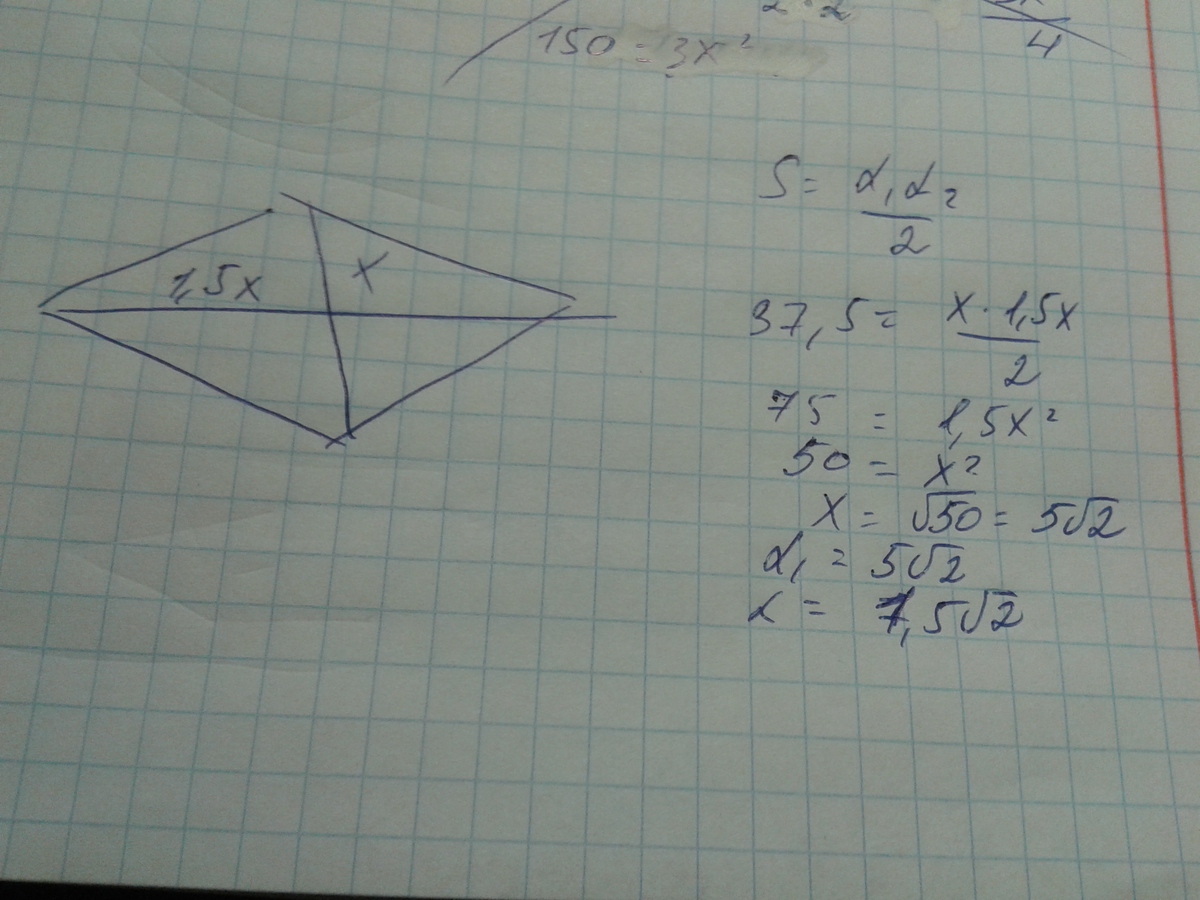 2·2
4
150 = 3x²
1,5x
x
S = d₁d₂/2
37,5 = x·1,5x/2
75 = 1,5x²
50 = x²
x = √50 = 5√2
d₁ = 5√2
d = 7,5√2